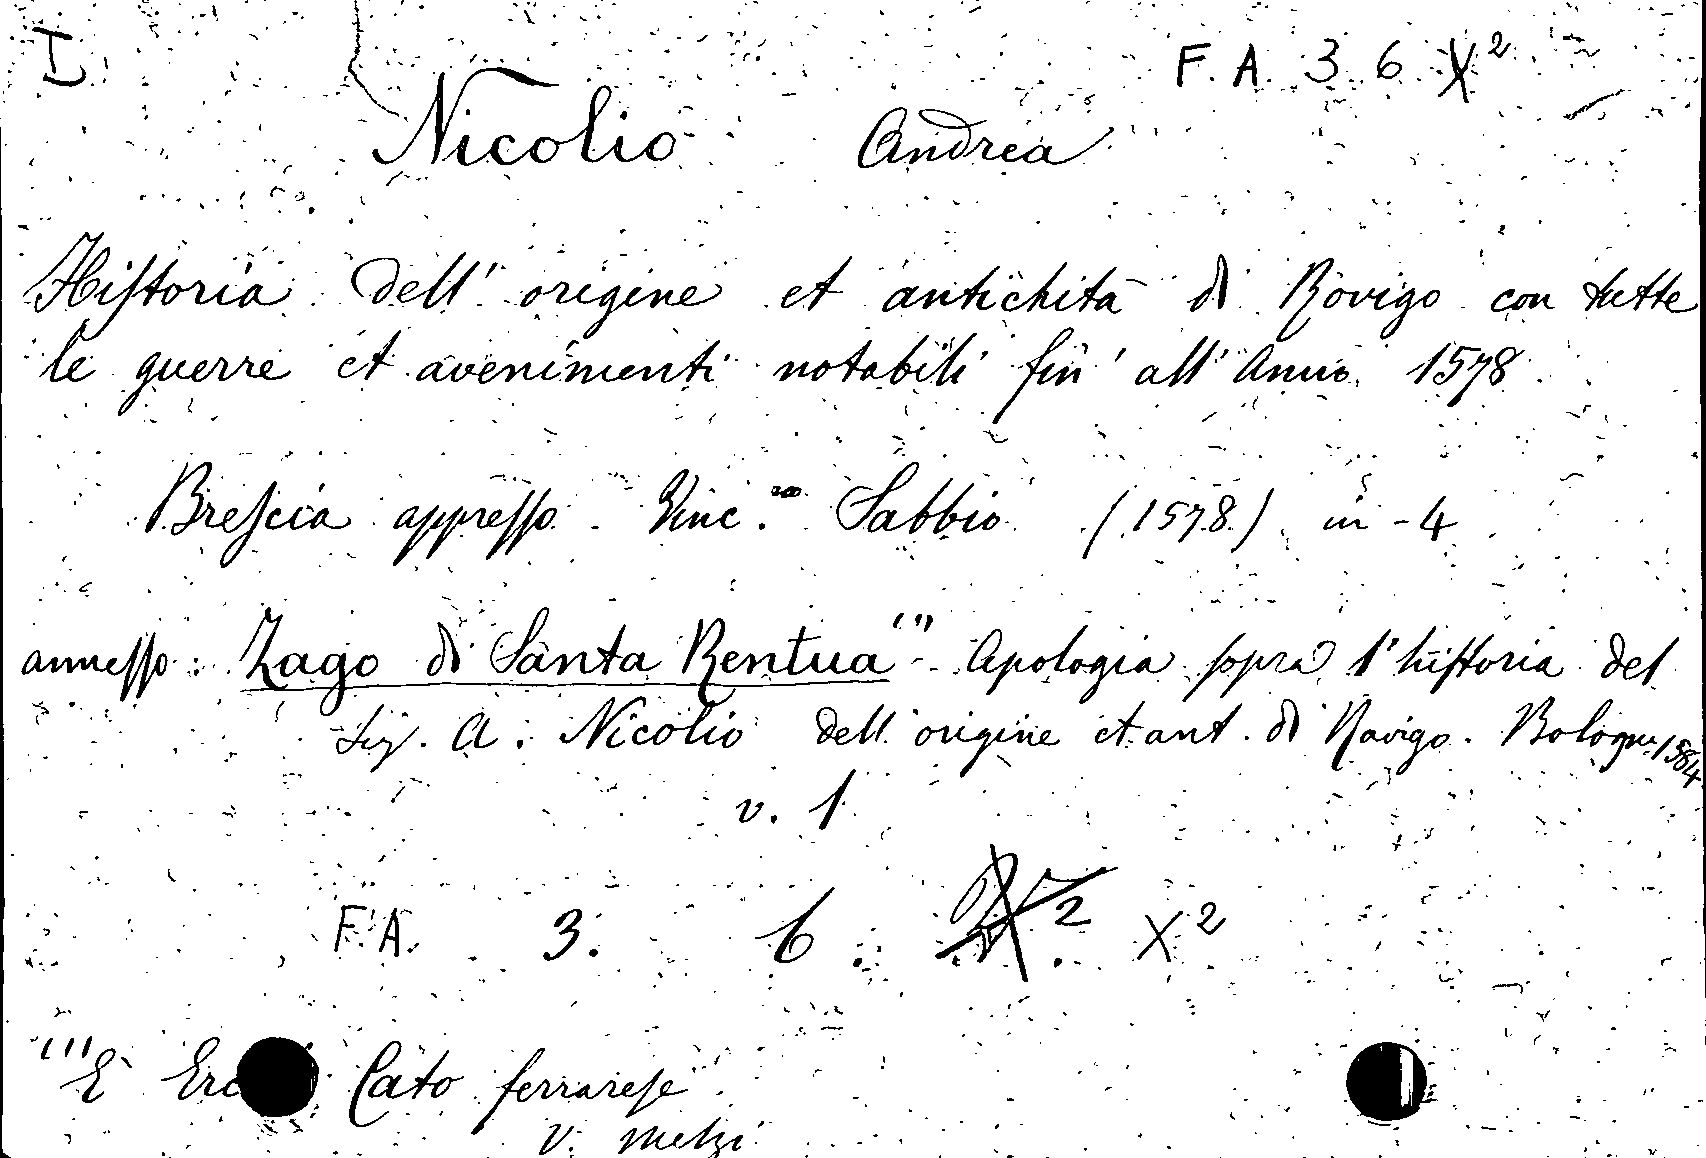 I
F. A. 3 6 X²
Nicolio Andrea
Hiſtoria dell' origine et antichità di Rovigo con tutte
le guerre et avenimenti notabili fin' all' Anno 1578
Breſcia appreſſo Vinc.º Sabbio (1578) in-4
anneſſo: Zago di Santa Rentua (1) Apologia ſopra l'hiſtoria del
Sig. A. Nicolio dell' origine et ant. di Rovigo. Bologna 1584
v. 1
F. A. 3. 6. X²
(1) È Cato ferrareſe
V. Melzi